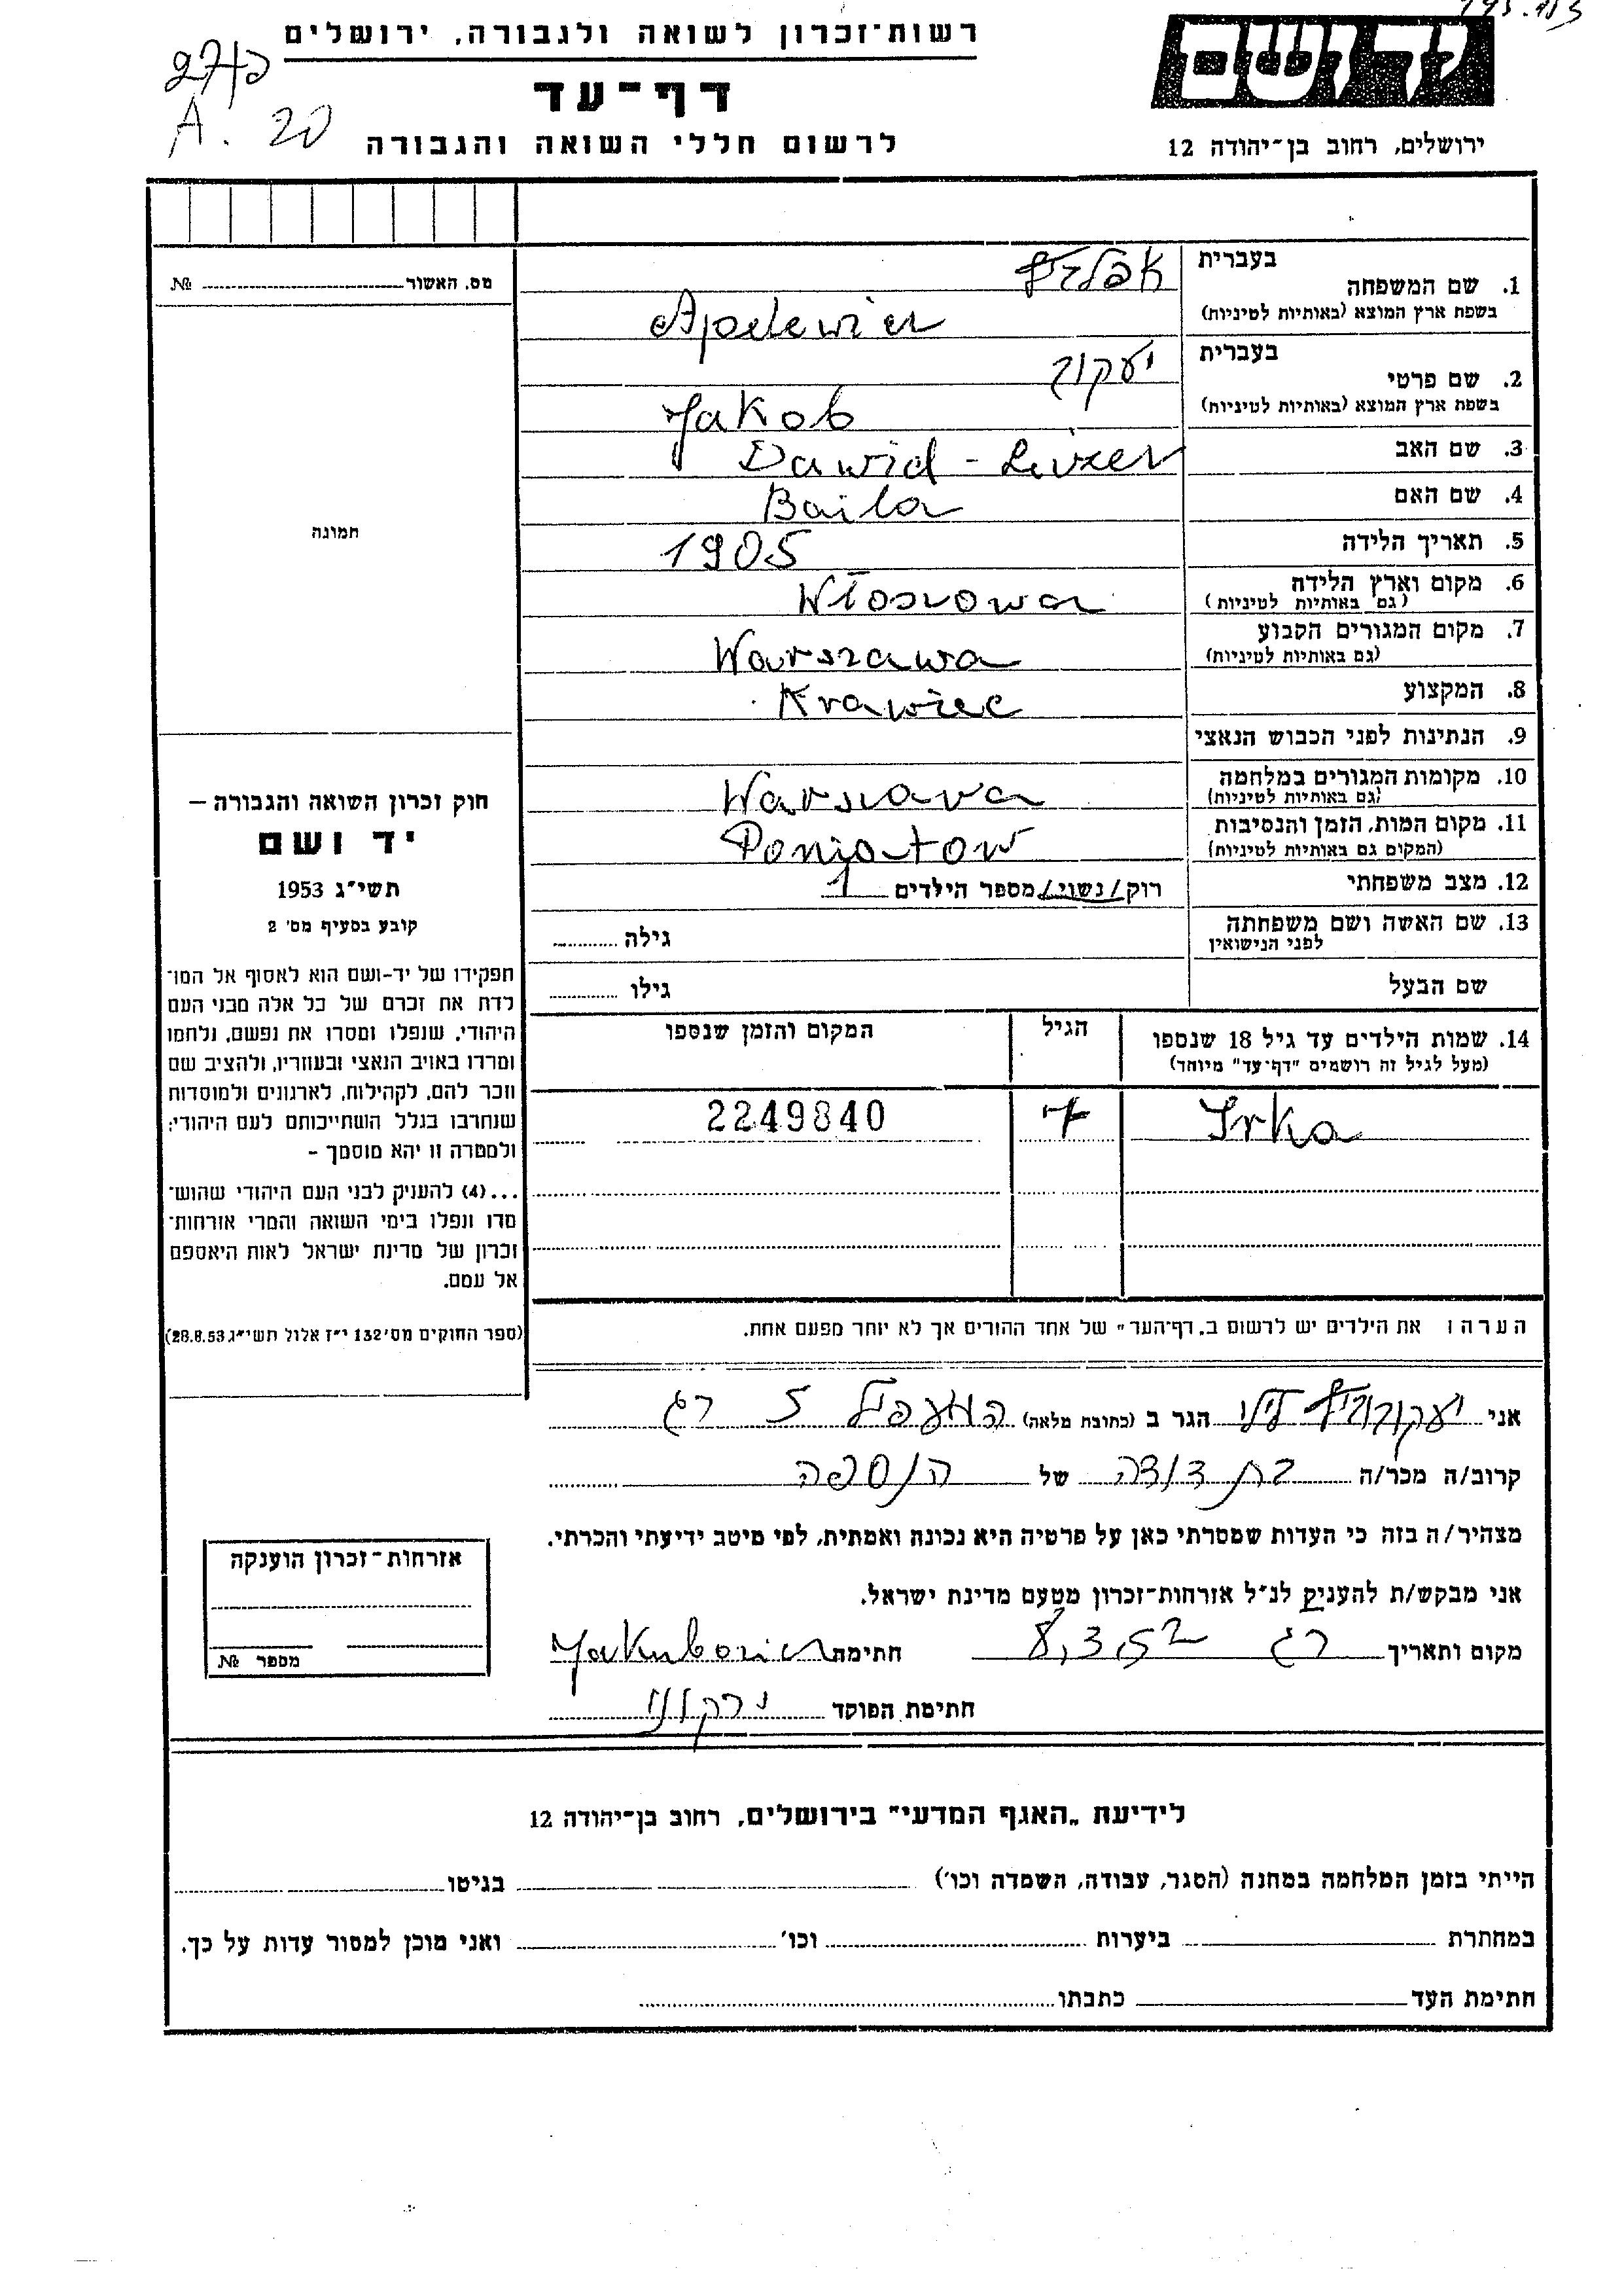 רשות־זכרון לשואה ולגבורה, ירושלים
דף־עד
לרשום חללי השואה והגבורה
יד ושם
ירושלים, רחוב בן־יהודה 12
A. 20
מס. האשור № 
בעברית
1. שם המשפחה
בשפת ארץ המוצא (באותיות לטיניות) Apelewicz
בעברית יעקוב
2. שם פרטי
בשפת ארץ המוצא (באותיות לטיניות) Jakob
3. שם האב Dawid - Lejzer
4. שם האם Baila
5. תאריך הלידה 1905
6. מקום וארץ הלידה Włoszowa
(גם באותיות לטיניות)
7. מקום המגורים הקבוע Warszawa
(גם באותיות לטיניות)
8. המקצוע Krawiec
9. הנתינות לפני הכבוש הנאצי
10. מקומות המגורים במלחמה Warszawa
(גם באותיות לטיניות)
11. מקום המות, הזמן והנסיבות Poniatow
(המקום גם באותיות לטיניות)
12. מצב משפחתי רוק/נשוי/מספר הילדים 1
13. שם האשה ושם משפחתה גילה
לפני הנישואין
שם הבעל גילו
14. שמות הילדים עד גיל 18 שנספו הגיל המקום והזמן שנספו
(מעל לגיל זה רושמים "דף־עד" מיוחד)
Irka 7 2249840
הערה: את הילדים יש לרשום ב„דף־העד" של אחד ההורים אך לא יותר מפעם אחת.
תמונה
חוק זכרון השואה והגבורה –
יד ושם
תשי"ג 1953
קובע בסעיף מס' 2
תפקידו של יד-ושם הוא לאסוף אל המו־
לדת את זכרם של כל אלה מבני העם
היהודי, שנפלו ומסרו את נפשם, נלחמו
ומרדו באויב הנאצי ובעוזריו, ולהציב שם
וזכר להם, לקהילות, לארגונים ולמוסדות
שנחרבו בגלל השתייכותם לעם היהודי;
ולמטרה זו יהא מוסמך –
...(4) להעניק לבני העם היהודי שהוש־
מדו ונפלו בימי השואה והמרי אזרחות־
זכרון של מדינת ישראל לאות היאספם
אל עמם.
(ספר החוקים מס' 132 י"ז אלול תשי"ג 28.8.53)
אני יעקובוביץ הגר ב (כתובת מלאה) המעפיל 5 רג
קרוב/ה מכר/ה בת דודה של הנספה
מצהיר/ה בזה כי העדות שמסרתי כאן על פרטיה היא נכונה ואמתית, לפי מיטב ידיעתי והכרתי.
אני מבקש/ת להעניק לנ"ל אזרחות־זכרון מטעם מדינת ישראל.
מקום ותאריך רג חתימת
חתימת הפוקד
אזרחות־זכרון הוענקה
מספר №
לידיעת „האגף המדעי" בירושלים, רחוב בן־יהודה 12
הייתי בזמן המלחמה במחנה (הסגר, עבודה, השמדה וכו') בגיטו
במחתרת ביערות וכו' ואני מוכן למסור עדות על כך.
חתימת העד כתבתו